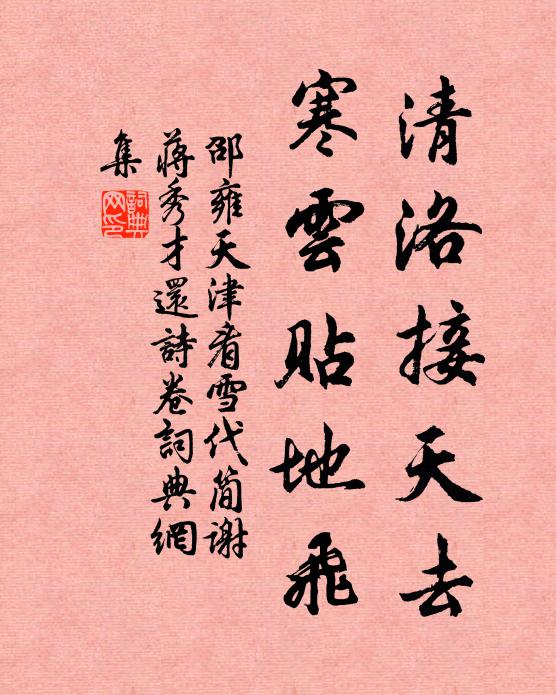 清洛接天去
寒雲貼地飛
邵雍天津看雪代簡謝
蔣秀才還詩卷詞典網
集
詞典網印